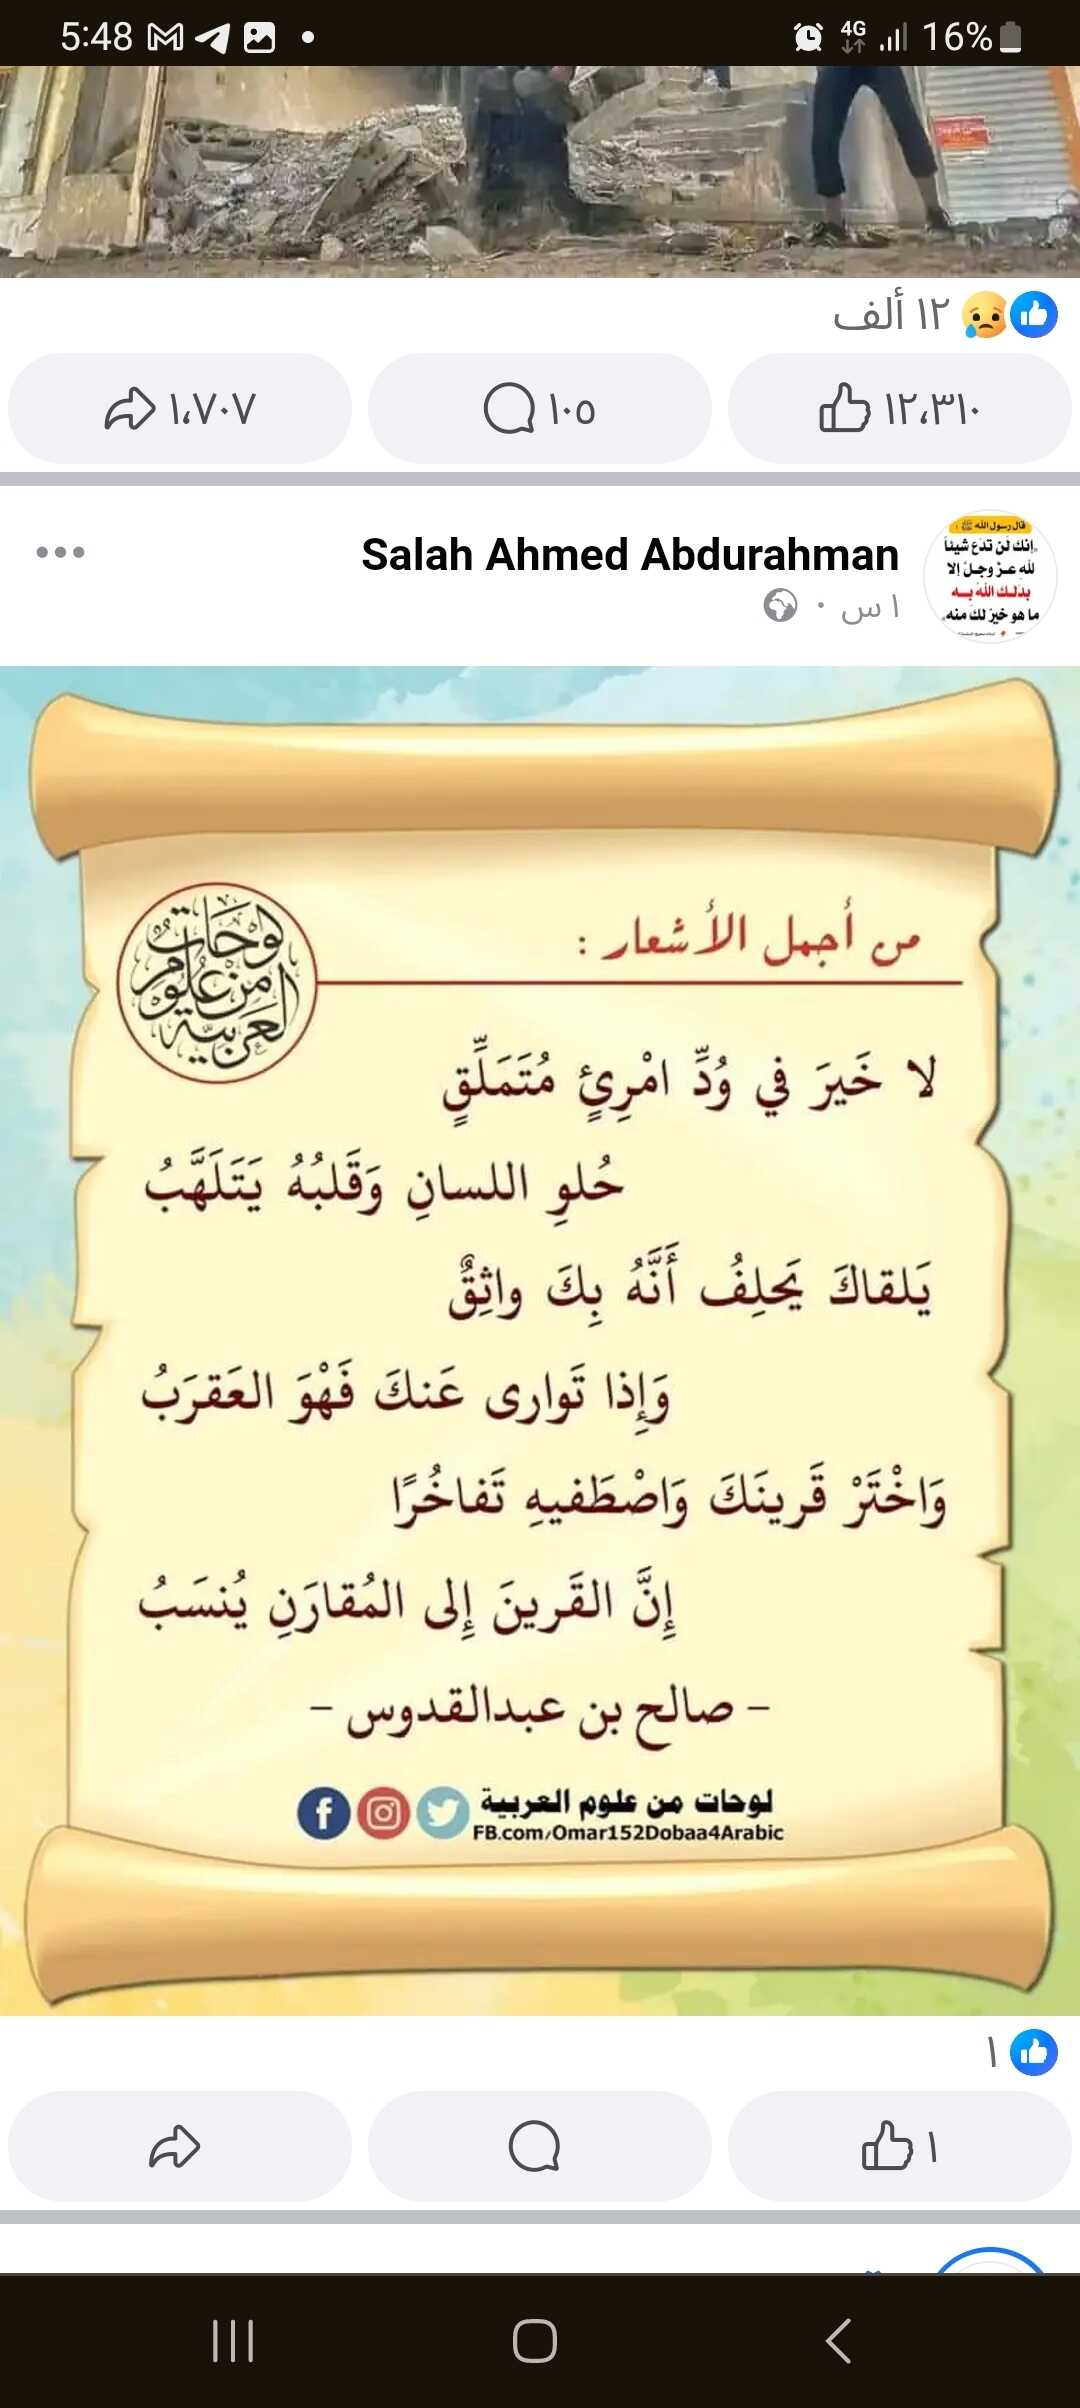 5:48
4G
16%
١٢ ألف
١٢،٣١٠
١٠٥
١،٧٠٧
Salah Ahmed Abdurahman
١ س ·
قال رسول الله ﷺ
إنك لن تدع شيئاً
لله عز وجل إلا
بدلك الله به
ما هو خير لك منه
من أجمل الأشعار :
لوحات من علوم العربية
لا خَيرَ في وُدِّ امْرِئٍ مُتَمَلِّقٍ
حُلوِ اللسانِ وَقَلبُهُ يَتَلَهَّبُ
يَلقاكَ يَحلِفُ أَنَّهُ بِكَ واثِقٌ
وَإِذا تَوارى عَنكَ فَهْوَ العَقرَبُ
وَاخْتَرْ قَرينَكَ وَاصْطَفيهِ تَفاخُرًا
إِنَّ القَرينَ إِلى المُقارَنِ يُنسَبُ
– صالح بن عبدالقدوس –
لوحات من علوم العربية
FB.com/Omar152Dobaa4Arabic
١
١